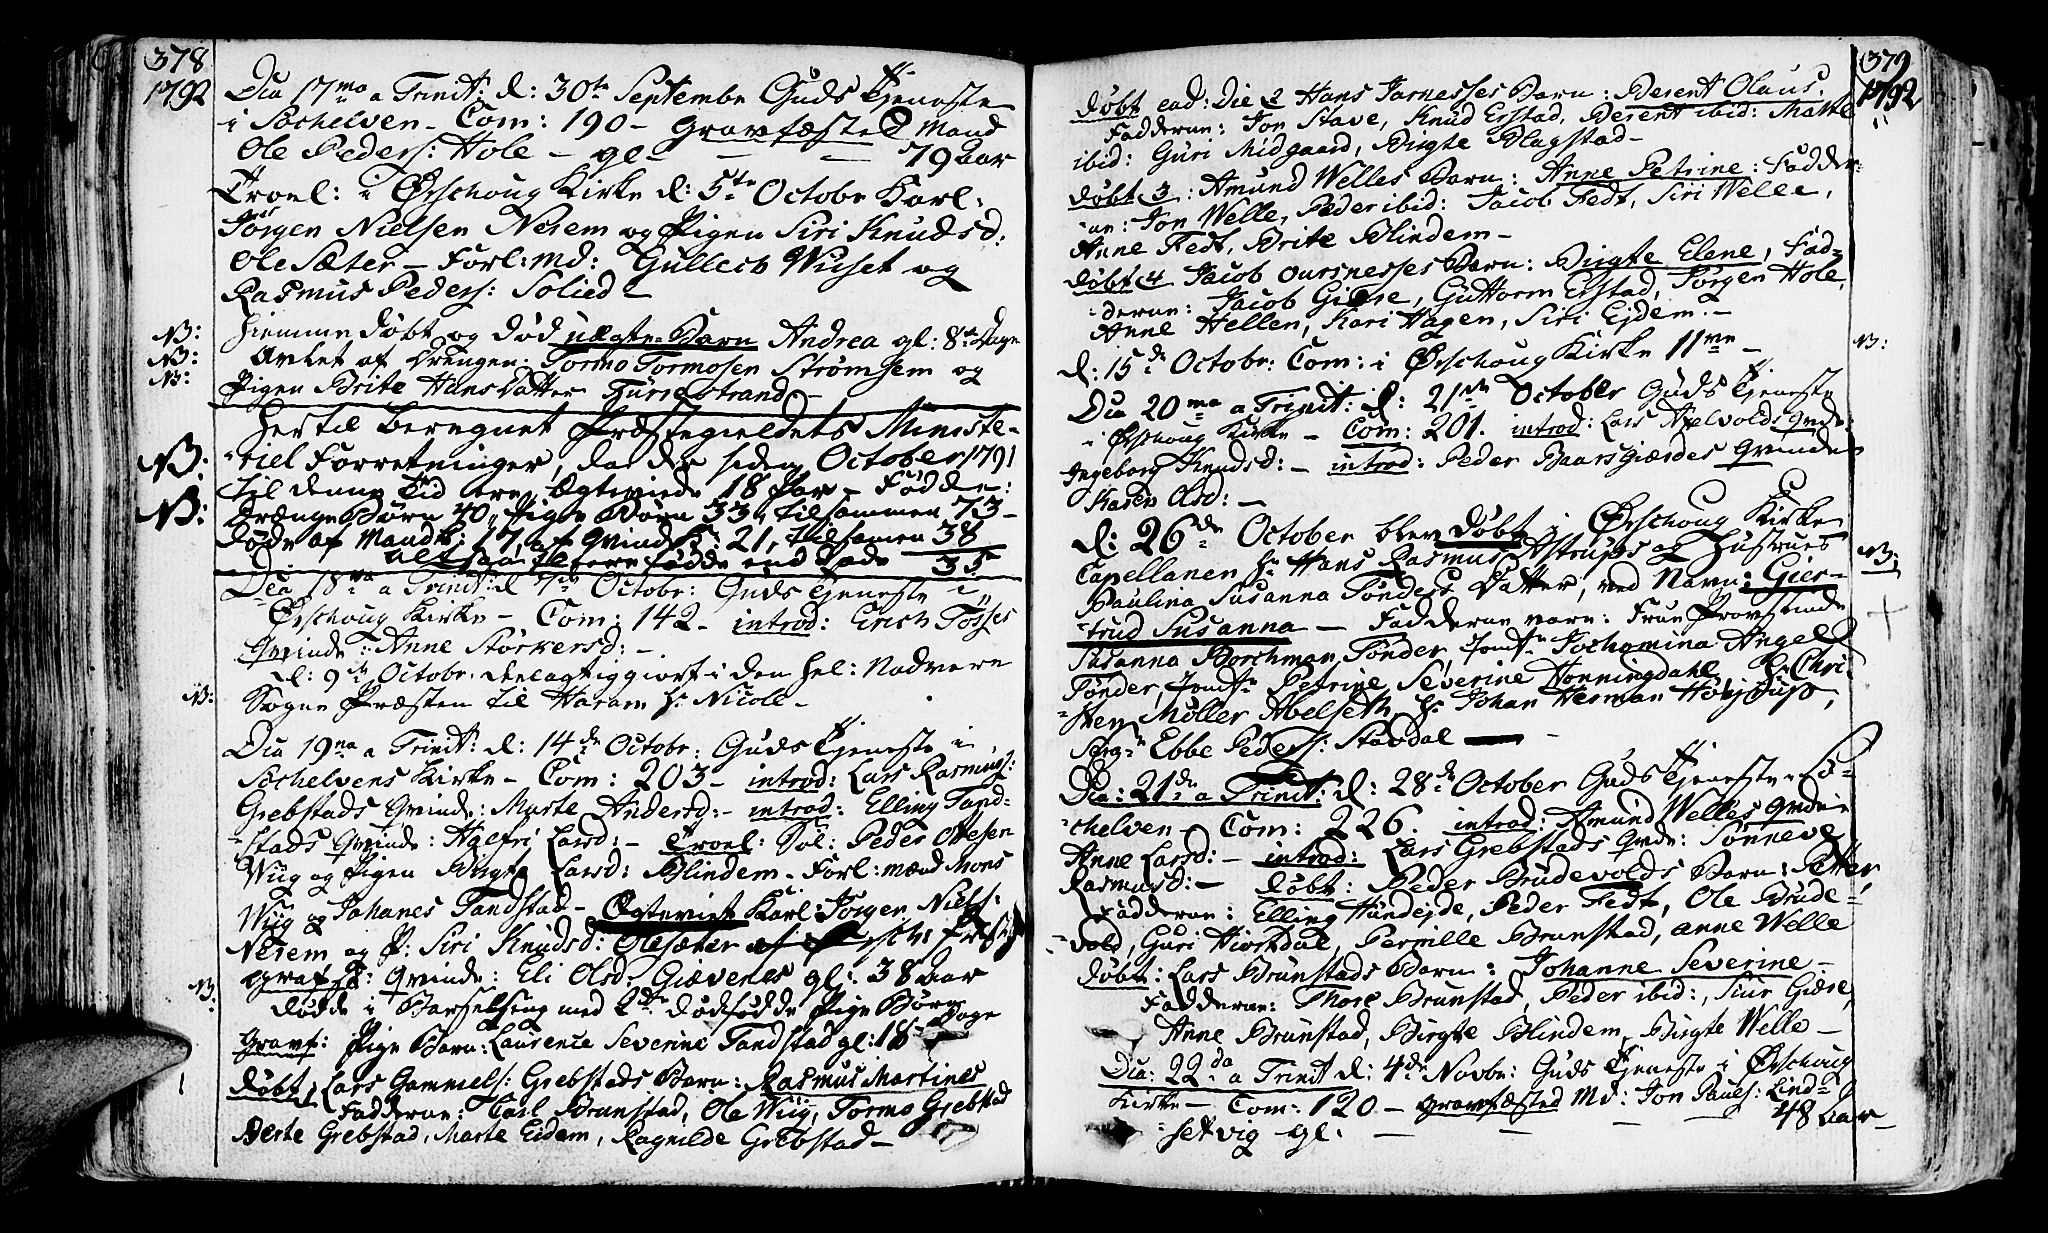 378
1792
Dia 17ma a Trinit: d: 30te Septembr Guds Tjeneste
i Sochelven - Com: 190 - Gravfæsted Mand
Ole Peders: Hole - gl: - - - 79 Aar
Troel: i Ørschoug Kirke d: 5te Octobr Karl:
Jørgen Nielsen Nerem og Pigen Siri Knudsd:
Ole Sæter - Forl: md: Gullech Wiset og
Rasmus Peders: Solied -
NB: hiemme døbt og død uægte Barn Andrea gl: 8te Dage
NB: Avlet af Drengen: Tormo Tormosen Strømhem og
NB: Pigen Brite HansDatter Hursestrand -
Hertil beregnet Præstegieldets Ministe-
NB: riel Forretninger, da de siden October 1791
til denne Tid ere Ægteviede 18 Par - Fødde:
NB: Drænge Børn 40, Pige Børn 33, tilsammen 73 -
Døde af Mandk: 17, af Qvindk: 21, tilsamen 38
altsaa flere fødde end døde 35
Dia 18va a Trinit: d: 7de Octobr: Guds Tjeneste i
Ørschoug Kirke - Com: 142 - introd: Erich Tosses
Qvinde: Anne Størkersd: -
d: 9de Octobr: deelagtiggiort i den hel: Nadvere
NB: Sogne Præsten til Haram hr Nicoll -
Dia 19na a Trinit: d: 14de Octobr: Guds Tjeneste i
Sochelvens Kirke - Com: 203 - introd: Lars Rasmus:
Grebstads Qvinde: Marte Andersd: - introd: Elling Tand-
stads Qvinde: Aglfri Larsd: - Troel: Sol: Peder Ottesen
Wiig og Pigen Birgte Larsd: Blindem - Forl: mænd Mons
Wiig og Johanes Tandstad - Ægteviet Karl: Jørgen Niels:
Nerem og P: Siri Knudsd: Olesæter
gravf: Qvinde: Eli Olsd: Giævenes gl: 38 Aar
NB: døde i Barselseng med 2de dødfødde Pige Børn
Gravf: Pige Barn: Laurence Severine Tandstad gl: 18 Dage
døbt: Lars Gammels: Grebstads Barn: Rasmus Martines
Fadderne: Carl Brunstad, Ole Wiig, Tormo Grebstad
Berte Grebstad, Marte Eidem, Ragnilde Grebstad -
379
1792
døbt ead: Die 2 Hans Jarnesses Barn: Berent Olaus:
Fadderne: Jon Stave, Knud Erstad, Berent ibid: Malte
ibid: Guri Midgaard, Birgte Blagstad -
døbt 3: Amund Welles Barn: Anne Petrine: Fadder-
ne: Jon Welle, Peder ibid: Jacob Fedt, Siri Welle,
Anne Fedt, Brite Blindem -
døbt 4 Jacob Oursnesses Barn: Birgte Elene, Fad-
derne: Jacob Giære, Guttorm Erstad, Jørgen Hole,
Anne Hellen, Kari Hagen, Siri Ejdem. -
d: 15de Octobr: Com: i Ørschoug Kirke 11ve - NB:
Dia 20ma a Trinit: d: 21de October Guds Tjeneste
i Ørschoug Kirke - Com: 201. introd: Lars Apelvolds Qvde:
Ingeborg Knudsd: - introd: Peder Baarsgierdes Qvinde
Karen Olsd: -
d: 26de October blev døbt i Ørschoug Kirke
Capellanen hr Hans Rasmus Astrups og Hustrues NB:
Paulina Susanna Tønders Datter, ved Navn: Gier-
trud Susanna - Fadderne vare: Frue Provstinde
Susanna Borchman Tønder, Jomfr Jochomina Angel
Tønder, Jomfr Petrine Severine Honningdahl, Hr Chri-
sten Møller Abelseth, hr Johan Herman
Serg: Ebbe Peders: Stavdal -
Dia: 21de a Trinit: d: 28de October Guds Tjeneste i So-
chelven - Com: 226. introd: Amund Welles Qvde:
Anne Larsd: - introd: Lars Grebstads Qvde: Sønneve
Rasmusd: - døbt: Peder Brudevolds Barn: Petter,
Fadderne: Elling Hundejde, Peder Fedt, Ole Brude-
vold, Guri Hiortdal, Pernille Brunstad, Anne Welle
døbt: Lars Brunstads Barn: Johanne Severine -
Fadderne: Thore Brunstad, Peder ibid:, Siur Giære,
Anne Brunstad, Birgte Blindem, Birgte Welle -
Dia: 22da a Trinit d: 4de Novbr: Guds Tjeneste i Ørschoug
Kirke - Com: 120 - gravfæsted Md: Jon Pauls: Lind-
setvig gl: - - - 48 Aar -